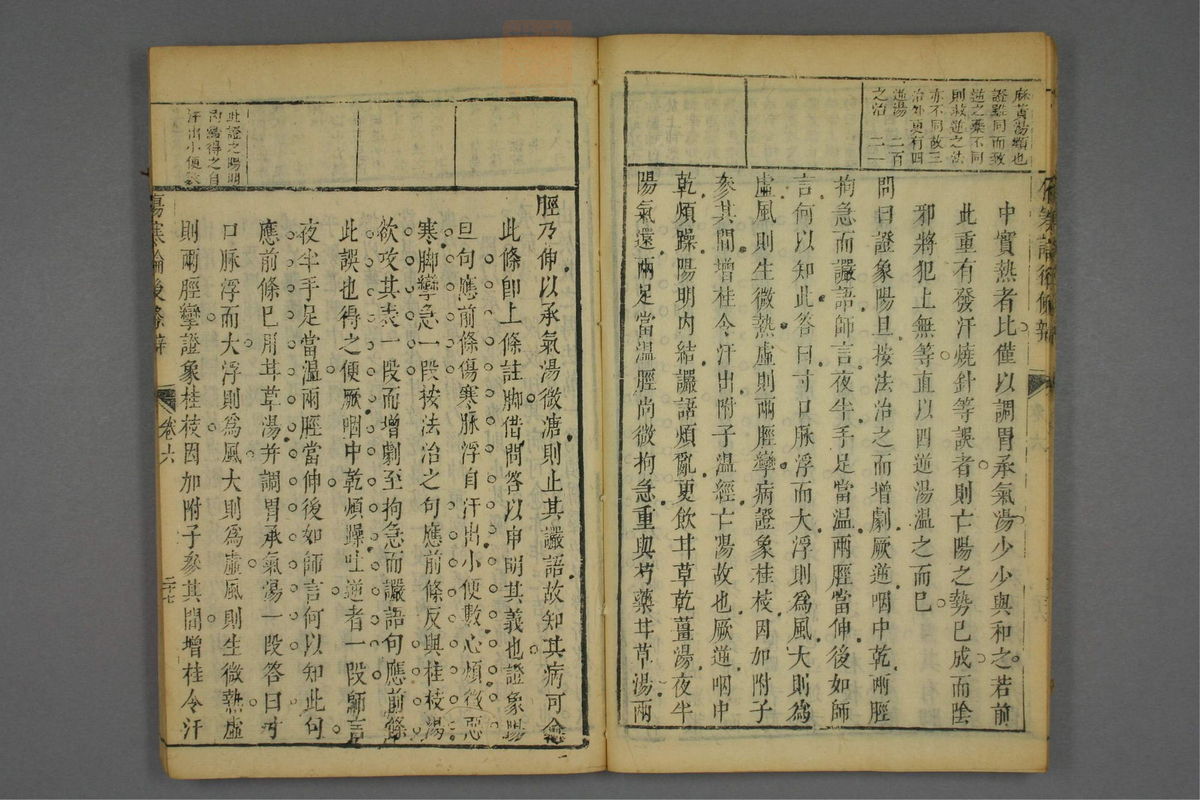 麻黃湯類也
證雖同而致
逆之藥不同
則救逆之法
亦不同故三
治外更有四
逆湯 二百
之治 二一
中實熱者比僅以調胃承氣湯少少與和之若前
此重有發汗燒針等誤者則亡陽之勢已成而陰
邪將犯上無等直以四逆湯溫之而已
問曰證象陽旦按法治之而增劇厥逆咽中乾兩脛
拘急而讝語師言夜半手足當溫兩脛當伸後如師
言何以知此答曰寸口脉浮而大浮則爲風大則爲
虛風則生微熱虛則兩脛攣病證象桂枝因加附子
參其間增桂令汗出附子溫經亡陽故也厥逆咽中
乾煩躁陽明內結讝語煩亂更飲甘草乾薑湯夜半
陽氣還兩足當溫脛尚微拘急重與芍藥甘草湯兩
此證之陽明
汗出小便
脛乃伸以承氣湯微溏則止其讝語故知其病可愈
此條卽上條註脚借問答以申明其義也證象陽
旦句應前條傷寒脉浮自汗出小便數心煩微惡
寒脚攣急一段按法治之句應前條反與桂枝湯
欲攻其表一段而增劇至拘急而讝語句應前條
此誤也得之便厥咽中乾煩躁吐逆者一段師言
夜半手足當溫兩脛當伸後如師言何以知此句
應前條已用甘草湯并調胃承氣湯一段答曰寸
口脉浮而大浮則爲風大則爲虛風則生微熱虛
則兩脛攣證象桂枝因加附子參其間增桂令汗
傷寒論後條辨 卷六 二十七